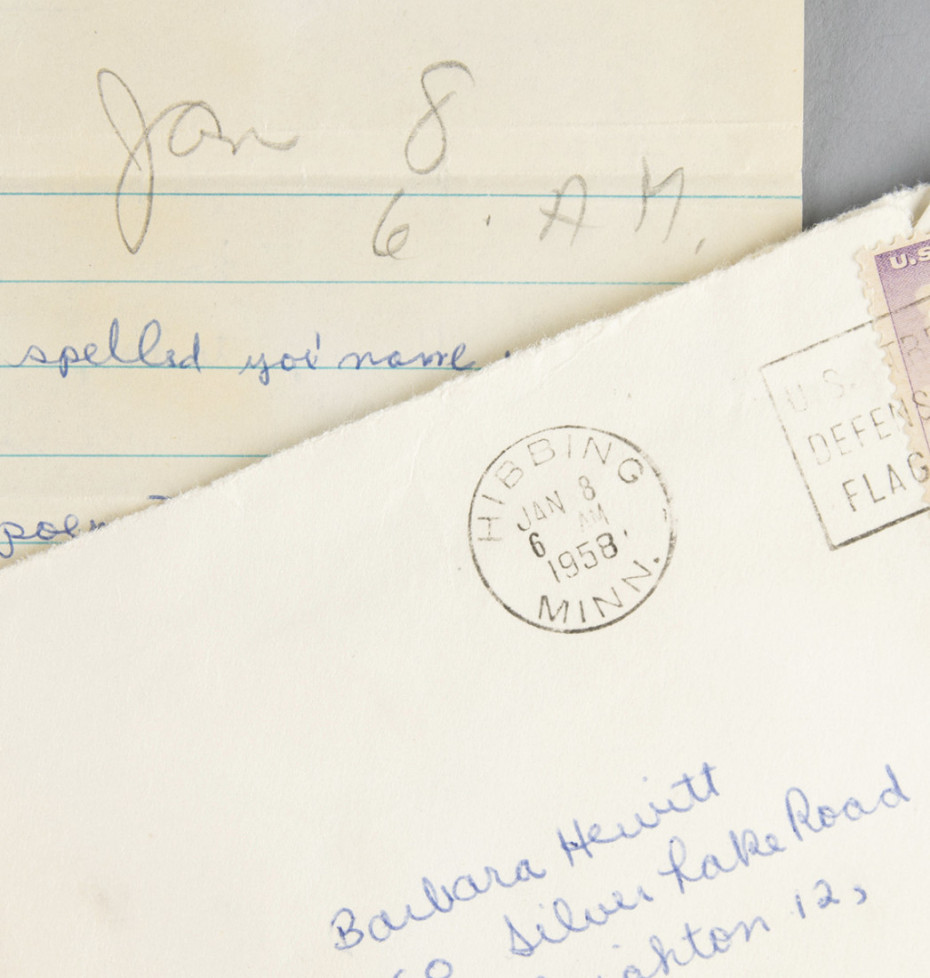 Jan 8
6 . A M.
spelled you' name.
U.S
HIBBING
JAN 8
6 AM
1958
MINN.
U.S.
DEFENS
FLAG
Barbara Hewitt
Silver Lake Road
ighton 12,